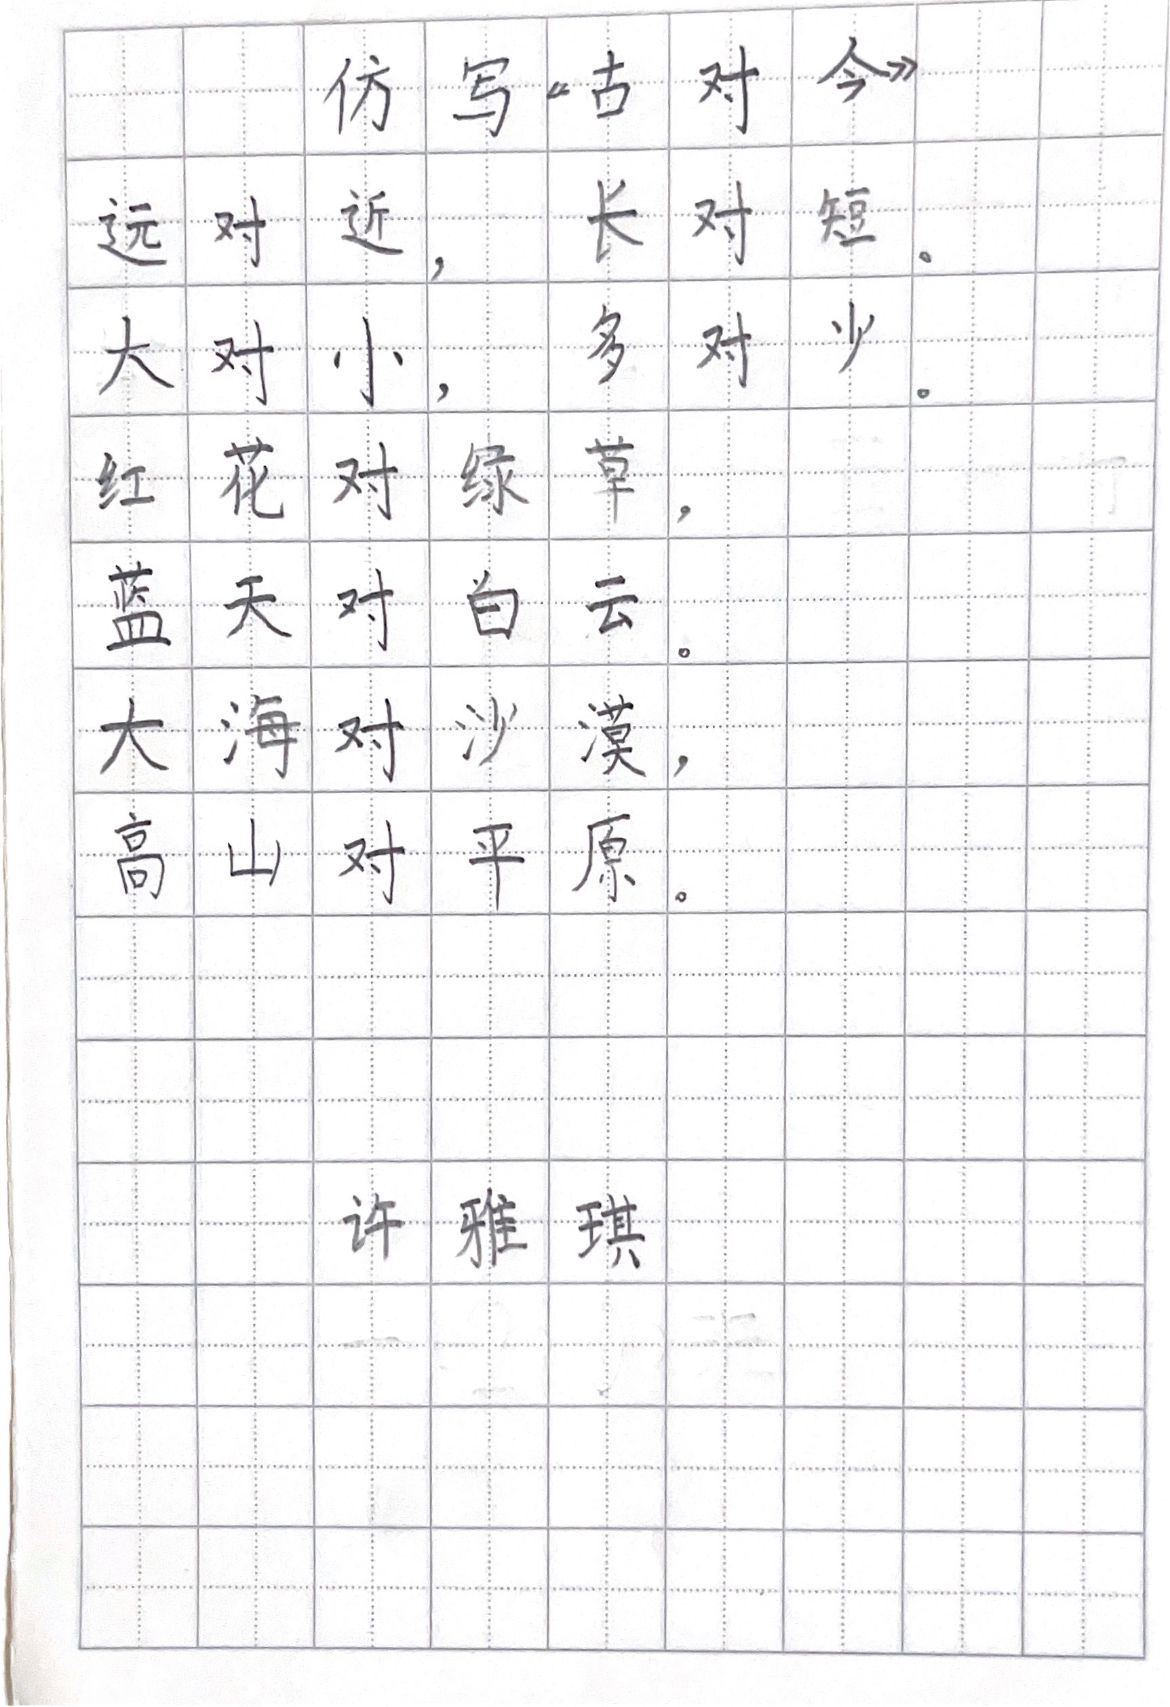 仿写《古对今》
远对近，长对短。
大对小，多对少。
红花对绿草，
蓝天对白云。
大海对沙漠，
高山对平原。
许雅琪